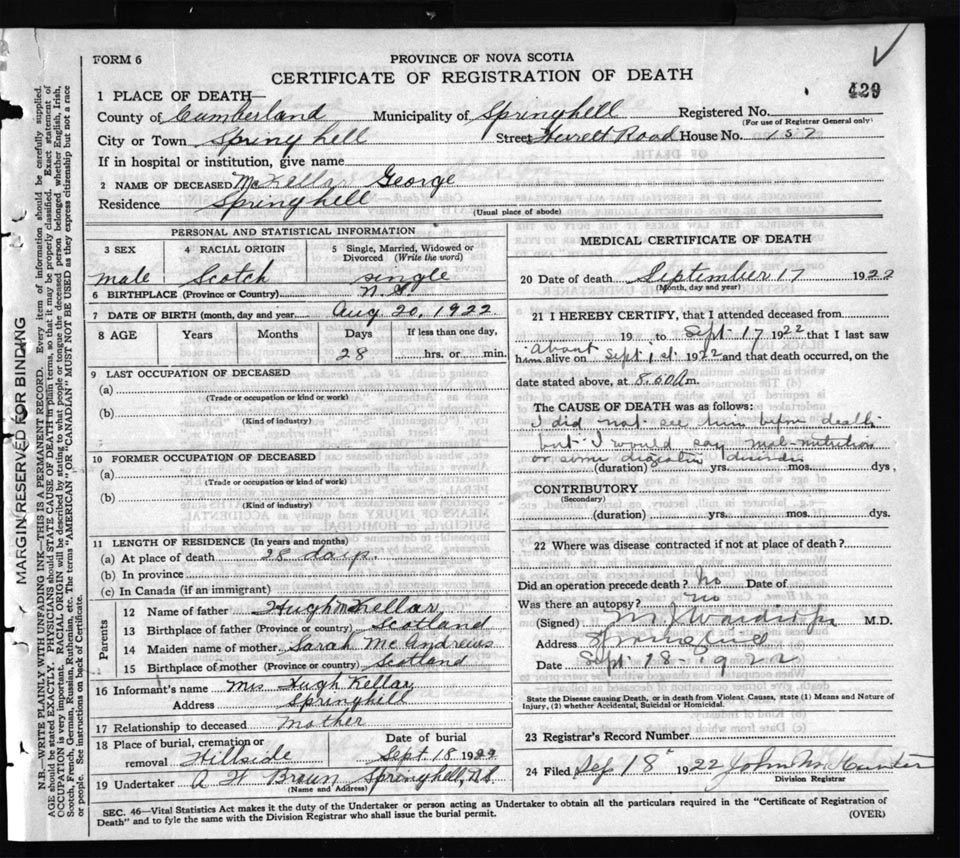 FORM 6
PROVINCE OF NOVA SCOTIA
CERTIFICATE OF REGISTRATION OF DEATH
429
1 PLACE OF DEATH—
County of Cumberland Municipality of Springhill Registered No.
(For use of Registrar General only)
City or Town Springhill Street Herrett Road House No. 157
If in hospital or institution, give name
2 NAME OF DECEASED McKellar George
Residence Springhill
(Usual place of abode)
PERSONAL AND STATISTICAL INFORMATION
3 SEX 4 RACIAL ORIGIN 5 Single, Married, Widowed or Divorced (Write the word)
male Scotch single
6 BIRTHPLACE (Province or Country) N.S.
7 DATE OF BIRTH (month, day and year) Aug. 20, 1922
8 AGE Years Months Days If less than one day,
28 hrs. or min.
9 LAST OCCUPATION OF DECEASED
(a)
(Trade or occupation or kind or work)
(b)
(Kind of industry)
10 FORMER OCCUPATION OF DECEASED
(a)
(Trade or occupation or kind of work)
(b)
(Kind of industry)
11 LENGTH OF RESIDENCE (In years and months)
(a) At place of death 28 days
(b) In province
(c) In Canada (if an immigrant)
Parents
12 Name of father Hugh McKellar
13 Birthplace of father (Province or country) Scotland
14 Maiden name of mother Sarah McAndrews
15 Birthplace of mother (Province or country) Scotland
16 Informant's name Mrs Hugh Kellar
Address Springhill
17 Relationship to deceased Mother
18 Place of burial, cremation or removal Hillside Date of burial Sept. 18 1922
19 Undertaker A H Brown Springhill, N.S.
(Name and Address)
MEDICAL CERTIFICATE OF DEATH
20 Date of death September 17 1922
(Month, day and year)
21 I HEREBY CERTIFY, that I attended deceased from
19 to Sept. 17 1922 that I last saw
him alive on about Sept 1st 1922 and that death occurred, on the
date stated above, at m.
The CAUSE OF DEATH was as follows:
I did not see him before death
but I would say mal-nutrition
or some digestive disorder
(duration) yrs. mos. dys.
CONTRIBUTORY
(Secondary)
(duration) yrs. mos. dys.
22 Where was disease contracted if not at place of death?
Did an operation precede death? No Date of
Was there an autopsy? no
(Signed) M.D.
Address Springhill
Date Sept. 18 - 1922
State the Disease causing Death, or in death from Violent Causes, state (1) Means and Nature of Injury, (2) whether Accidental, Suicidal or Homicidal.
23 Registrar's Record Number
24 Filed Sep 18 1922 John M. Hunter
Division Registrar
SEC. 46—Vital Statistics Act makes it the duty of the Undertaker or person acting as Undertaker to obtain all the particulars required in the "Certificate of Registration of
Death" and to fyle the same with the Division Registrar who shall issue the burial permit.
(OVER)
MARGIN RESERVED FOR BINDING
N.B.—WRITE PLAINLY WITH UNFADING INK—THIS IS A PERMANENT RECORD. Every item of information should be carefully supplied.
AGE should be stated EXACTLY. PHYSICIANS should STATE CAUSE OF DEATH in plain terms, so that it may be properly classified. Exact statement of
OCCUPATION is very important. RACIAL ORIGIN will be described by stating to what people or tongue the deceased person belonged whether English, Irish,
Scotch, French, German, Russian, Ruthenian, etc. The terms "AMERICAN" OR "CANADIAN" MUST NOT BE USED as they express citizenship but not a race
or people. See instructions on back of Certificate.